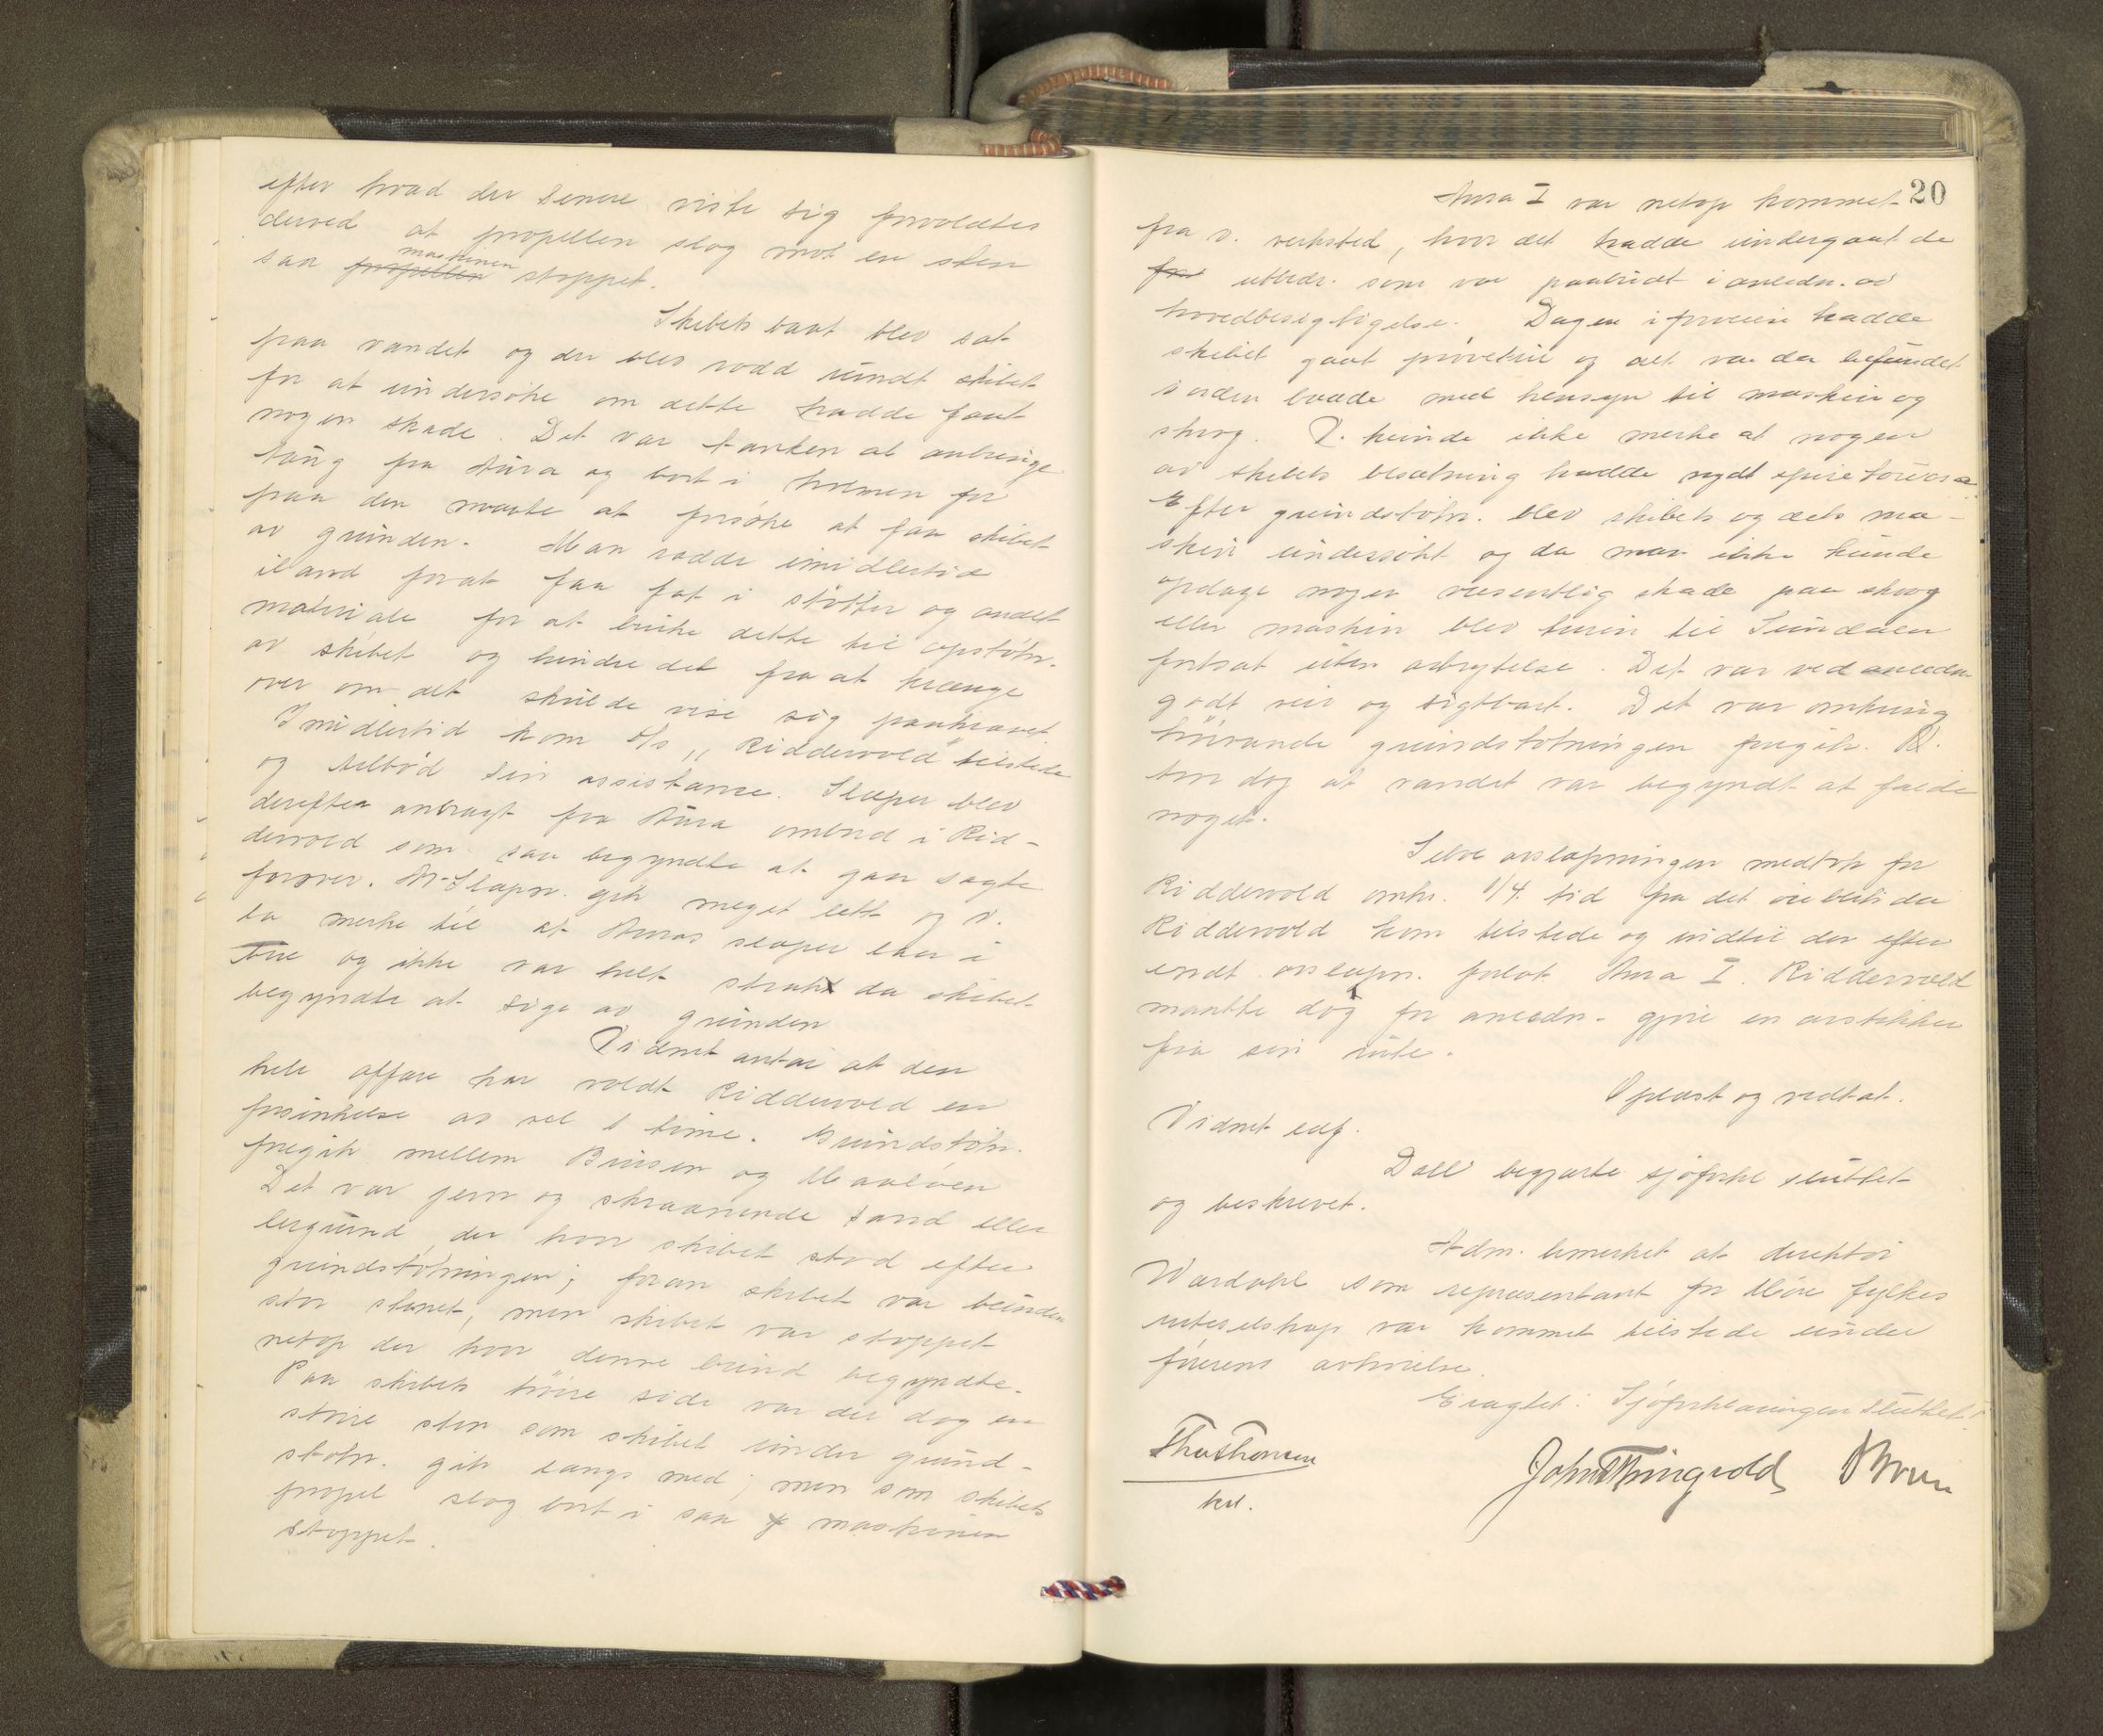 efter hvad der senere viste sig forvoldtes
derved at propellen slog mot en sten
saa propellen maskinen stoppet.
Skibets baat blev sat
paa vandet og der blev rodd rundt skibet
for at undersøke om dette hadde faat
nogen skade. Det var tanken at anbringe
taug fra Aura og bort i holmen for
paa den maate at forsøke at faa skibet
av grunden. Man rodde imidlertid
iland forat faa fat i støtter og andet
materiale for at bruke dette til opstøtn.
av skibet og hindre det fra at krænge
over om det skulde vise sig paakrævet
Imidlertid kom d/s "Riddervold" tilstede
og tilbød sin assistance. Slæper blev
derefter anbragt fra Aura ombord i Rid-
dervold som saa begyndte at gaa sagte
forover. Av-Slæpn. gik meget lett og v.
la merke til at Auras slæper laa i
sjøe og ikke var helt strak da skibet
begyndte at sige av grunden
Vidnet antar at den
hele affære har voldt Riddervold en
forsinkelse av vel 1 time. Grundstøtn.
foregik mellem Bjørsen og Maaløen
Det var jevn og skraanende sand eller
lergrund der hvor skibet stod efter
grundstøtningen; foran skibet var bunden
stor stenet, men skibet var stoppet
netop der hvor denne bund begyndte.
Paa skibets høire side var der dog en
større sten som skibet under grund-
støtn. gik langs med; men som skibets
propel slog bort i saa maskinen
stoppet.
20
Aura I var netop kommet
fra v. verksted, hvor det hadde undergaat de
for utbedr. som var paabudt i anledn. av
hovedbesigtigelse. Dagen iforveien hadde
skibet gaat prøvetur og alt var da befundet
i orden baade med hensyn til maskin og
skrog. V. kunde ikke merke at nogen
av skibets besætning hadde nydt spirituosa
Efter grundstøtn. blev skibets og dets ma-
skin undersøkt og da man ikke kunde
opdage nogen væsentlig skade paa skrog
eller maskin blev turen til Sundalen
fortsat uten avbrytelse. Det var ved anledn.
godt veir og sigtbart. Det var omkring
høivande grundstøtningen foregik. V.
tror dog at vandet var begyndt at falde
noget.
Selve avslæpningen medtok for
Riddervold omkr. 1/4. tid fra det øieblik da
Riddervold kom tilstede og indtil den efter
endt avslæpn. forlot Aura I. Riddervold
maatte dog for anledn. gjøre en avstikker
fra sin rute.
Oplæst og vedtat.
Vidnet edf.
Dall begjærte sjøforkl sluttet
og beskrevet.
Adm. bemerket at direktør
Wardahl som representant for Møre fylkes
ruteselskap var kommet tilstede under
førerens avhørelse.
Eragtet: Sjøforklaringen sluttet.
Thv Thomsen
kst.
John Thingvold